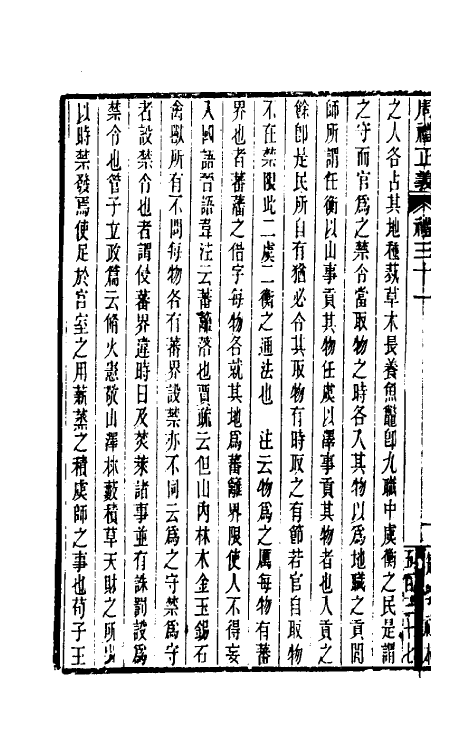 周禮正義 禮三十一
之人各占其地種萟草木長養魚鼈卽九職中虞衡之民是謂
之守而官爲之禁令當取物之時各入其物以爲地職之貢閭
師所謂任衡以山事貢其物任虞以澤事貢其物者也入貢之
餘卽是民所自有猶必令其取物有時取之有節若官自取物
不在禁限此二虞二衡之通法也 注云物爲之厲每物有蕃
界也者蕃藩之借字每物各就其地爲蕃籬界限使人不得妄
入國語晉語韋注云蕃籬落也賈疏云但山內林木金玉錫石
禽獸所有不同每物各有蕃界設禁亦不同云爲之守禁爲守
者設禁令也者謂侵蕃界違時日及焚萊諸事並有誅罰設爲
禁令也管子立政篇云脩火憲敬山澤林藪積草天財之所出
以時禁發焉使足於宮室之用薪蒸之積虞師之事也荀子王